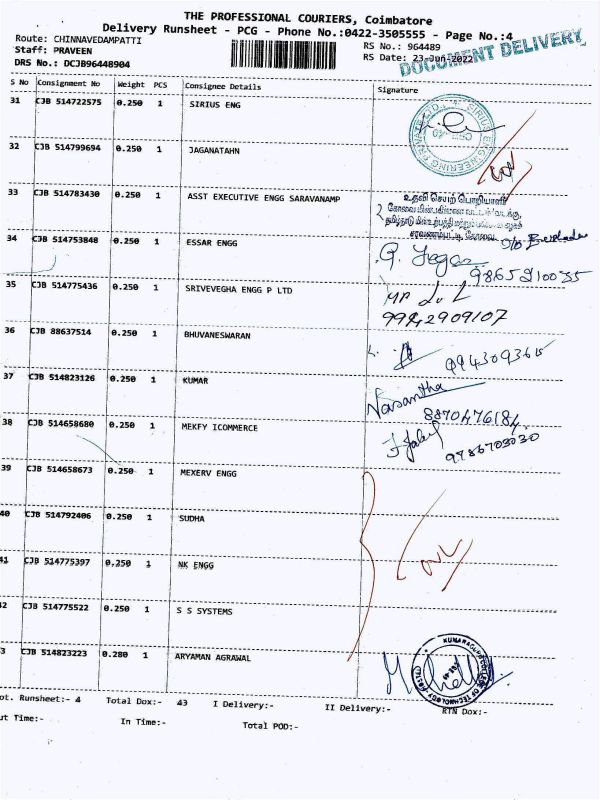 THE PROFESSIONAL COURIERS, Coimbatore
Delivery Runsheet - PCG - Phone No.:0422-3505555 - Page No.:4
Route: CHINNAVEDAMPATTI
RS No.: 964489
Staff: PRAVEEN
RS Date: 23-Jun-2022
DOCUMENT DELIVERY
DRS No.: DCJB96448904
S No Consignment No Weight PCS Consignee Details Signature
31 CJB 514722575 0.250 1 SIRIUS ENG
32 CJB 514799694 0.250 1 JAGANATAHN
33 CJB 514783430 0.250 1 ASST EXECUTIVE ENGG SARAVANAMP
உதவி செயற் பொறியாளர்
34 CJB 514753848 0.250 1 ESSAR ENGG
9865210035
35 CJB 514775436 0.250 1 SRIVEVEGHA ENGG P LTD
9942909107
36 CJB 88637514 0.250 1 BHUVANESWARAN
37 CJB 514823126 0.250 1 KUMAR
Vasantha
8870476184
38 CJB 514658680 0.250 1 MEKFY ICOMMERCE
9786703030
39 CJB 514658673 0.250 1 MEXERV ENGG
40 CJB 514792406 0.250 1 SUDHA
41 CJB 514775397 0.250 1 NK ENGG
2 CJB 514775522 0.250 1 S S SYSTEMS
3 CJB 514823223 0.280 1 ARYAMAN AGRAWAL
ot. Runsheet:- 4 Total Dox:- 43 I Delivery:- II Delivery:- RTN Dox:-
ut Time:- In Time:- Total POD:-